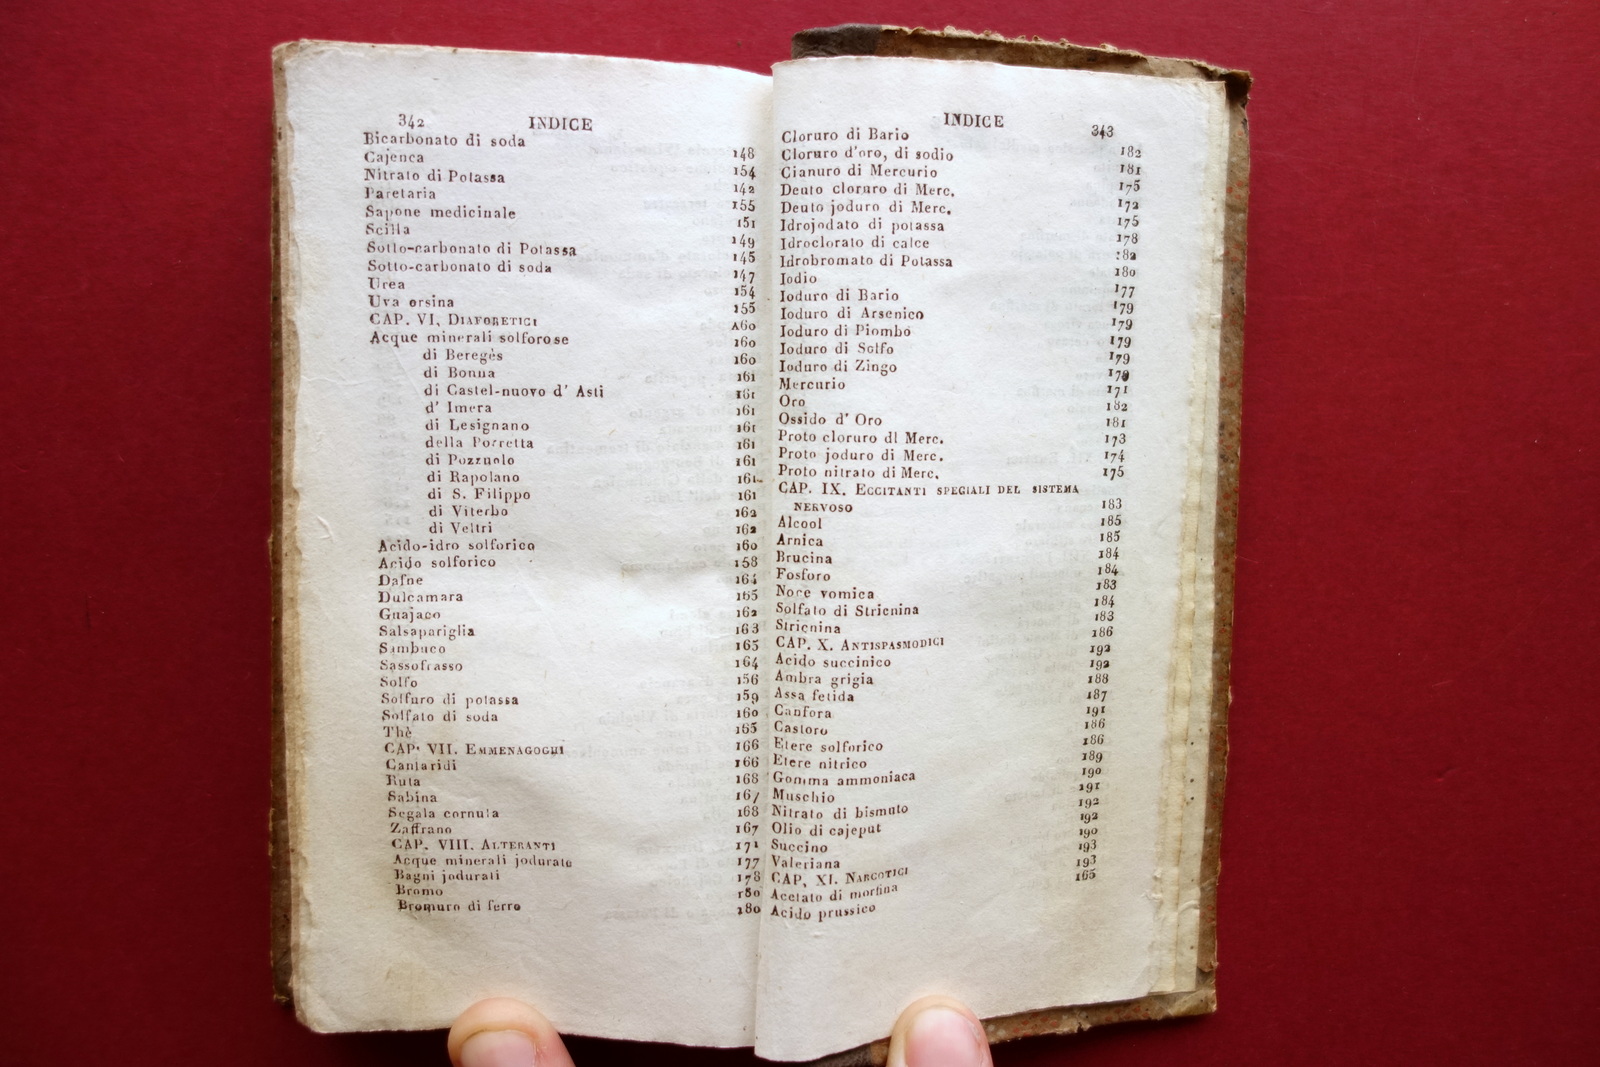 342 INDICE
Bicarbonato di soda 148
Cajenca 154
Nitrato di Potassa 142
Paretaria 155
Sapone medicinale 151
Scilla 149
Sotto-carbonato di Potassa 145
Sotto-carbonato di soda 147
Urea 154
Uva orsina 155
CAP. VI, DIAFORETICI A60
Acque minerali solforose 160
di Beregès 160
di Bonna 161
di Castel-nuovo d' Asti 161
d' Imera 161
di Lesignano 161
della Porretta 161
di Pozzuolo 161
di Rapolano 161
di S. Filippo 161
di Viterbo 162
di Veltri 162
Acido-idro solforico 160
Acido solforico 158
Dafne 164
Dulcamara 165
Guajaco 162
Salsapariglia 163
Sambuco 165
Sassofrasso 164
Solfo 156
Solfuro di potassa 159
Solfato di soda 160
Thè 165
CAP. VII. EMMENAGOGHI 166
Cantaridi 166
Ruta 168
Sabina 167
Segala cornuta 168
Zaffrano 167
CAP. VIII. ALTERANTI 171
Acque minerali jodurate 177
Bagni jodurati 178
Bromo 180
Bromuro di ferro 180
INDICE 343
Cloruro di Bario 182
Cloruro d'oro, di sodio 181
Cianuro di Mercurio 175
Deuto cloruro di Merc. 172
Deuto joduro di Merc. 175
Idrojodato di potassa 178
Idroclorato di calce 182
Idrobromato di Potassa 180
Iodio 177
Ioduro di Bario 179
Ioduro di Arsenico 179
Ioduro di Piombo 179
Ioduro di Solfo 179
Ioduro di Zingo 179
Mercurio 171
Oro 182
Ossido d' Oro 181
Proto cloruro dI Merc. 173
Proto joduro di Merc. 174
Proto nitrato di Merc. 175
CAP. IX. ECCITANTI SPECIALI DEL SISTEMA
NERVOSO 183
Alcool 185
Arnica 185
Brucina 184
Fosforo 184
Noce vomica 183
Solfato di Stricnina 184
Stricnina 183
CAP. X. ANTISPASMODICI 186
Acido succinico 192
Ambra grigia 192
Assa fetida 188
Canfora 187
Castoro 191
Etere solforico 186
Etere nitrico 186
Gomma ammoniaca 189
Muschio 190
Nitrato di bismuto 191
Olio di cajeput 192
Succino 192
Valeriana 190
CAP, XI. NARCOTICI 193
Acetato di morfina 193
Acido prussico 165